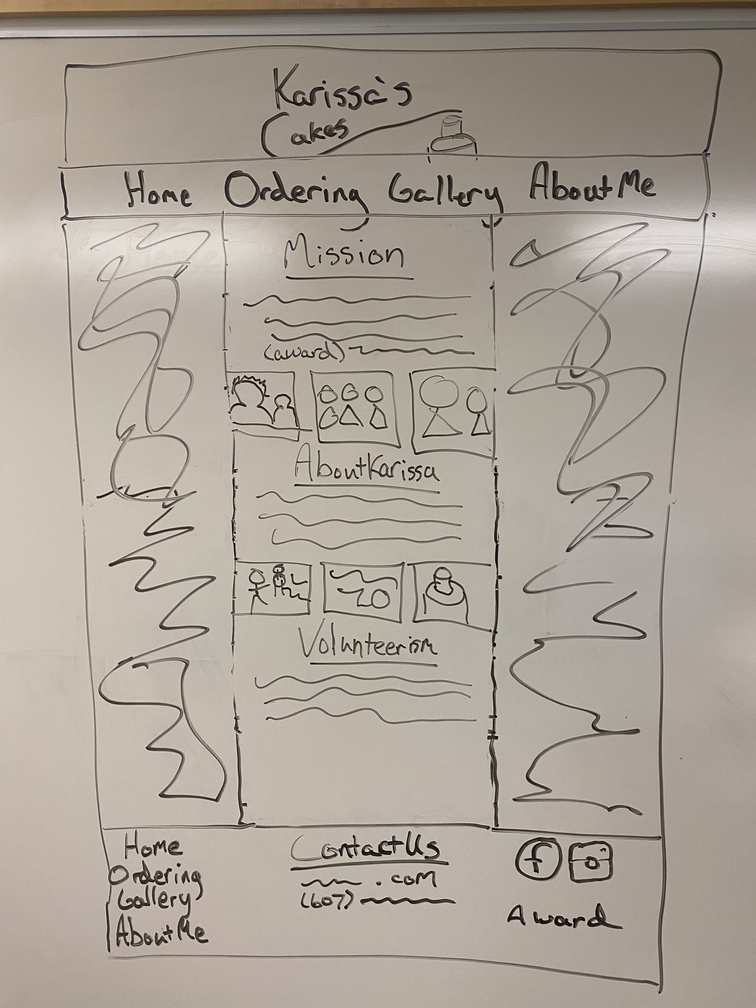 Karissa's
Cakes
Home Ordering Gallery About Me
Mission
(award)
About Karissa
Volunteerism
Home
Ordering
Gallery
About Me
Contact Us
.com
(607)
f
Award